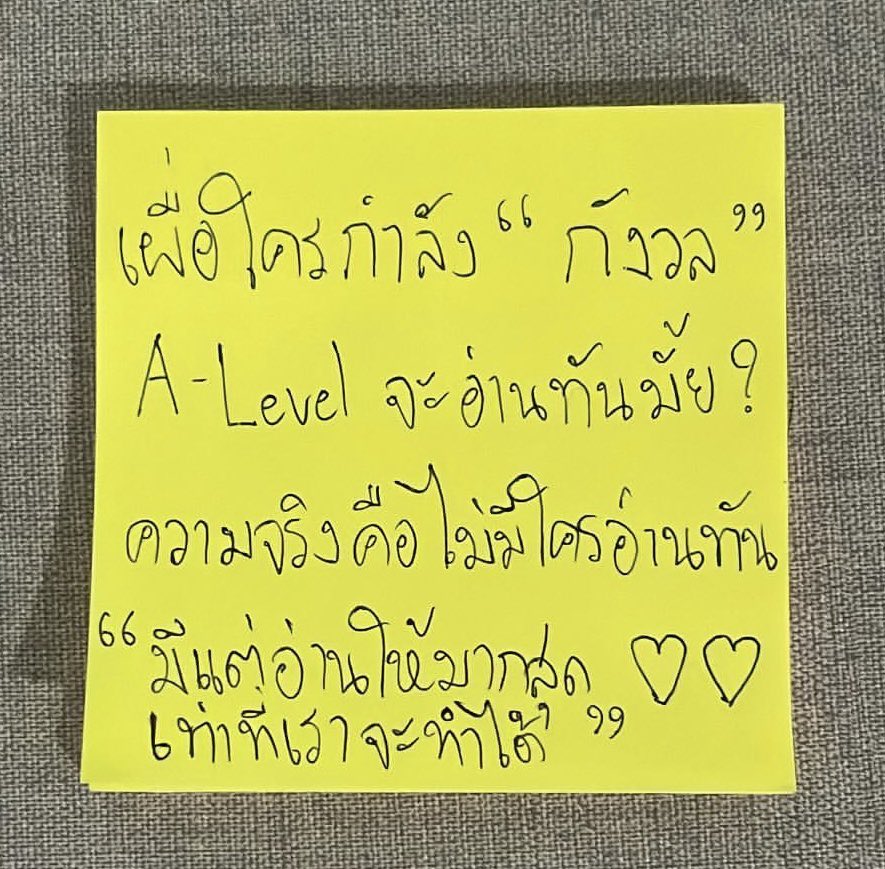 เผื่อใครกำลัง “ กังวล ”
A-Level จะอ่านทันมั้ย?
ความจริงคือไม่มีใครอ่านทัน
“ มีแต่อ่านให้มากสุด ♡♡
เท่าที่เราจะทำได้ ”